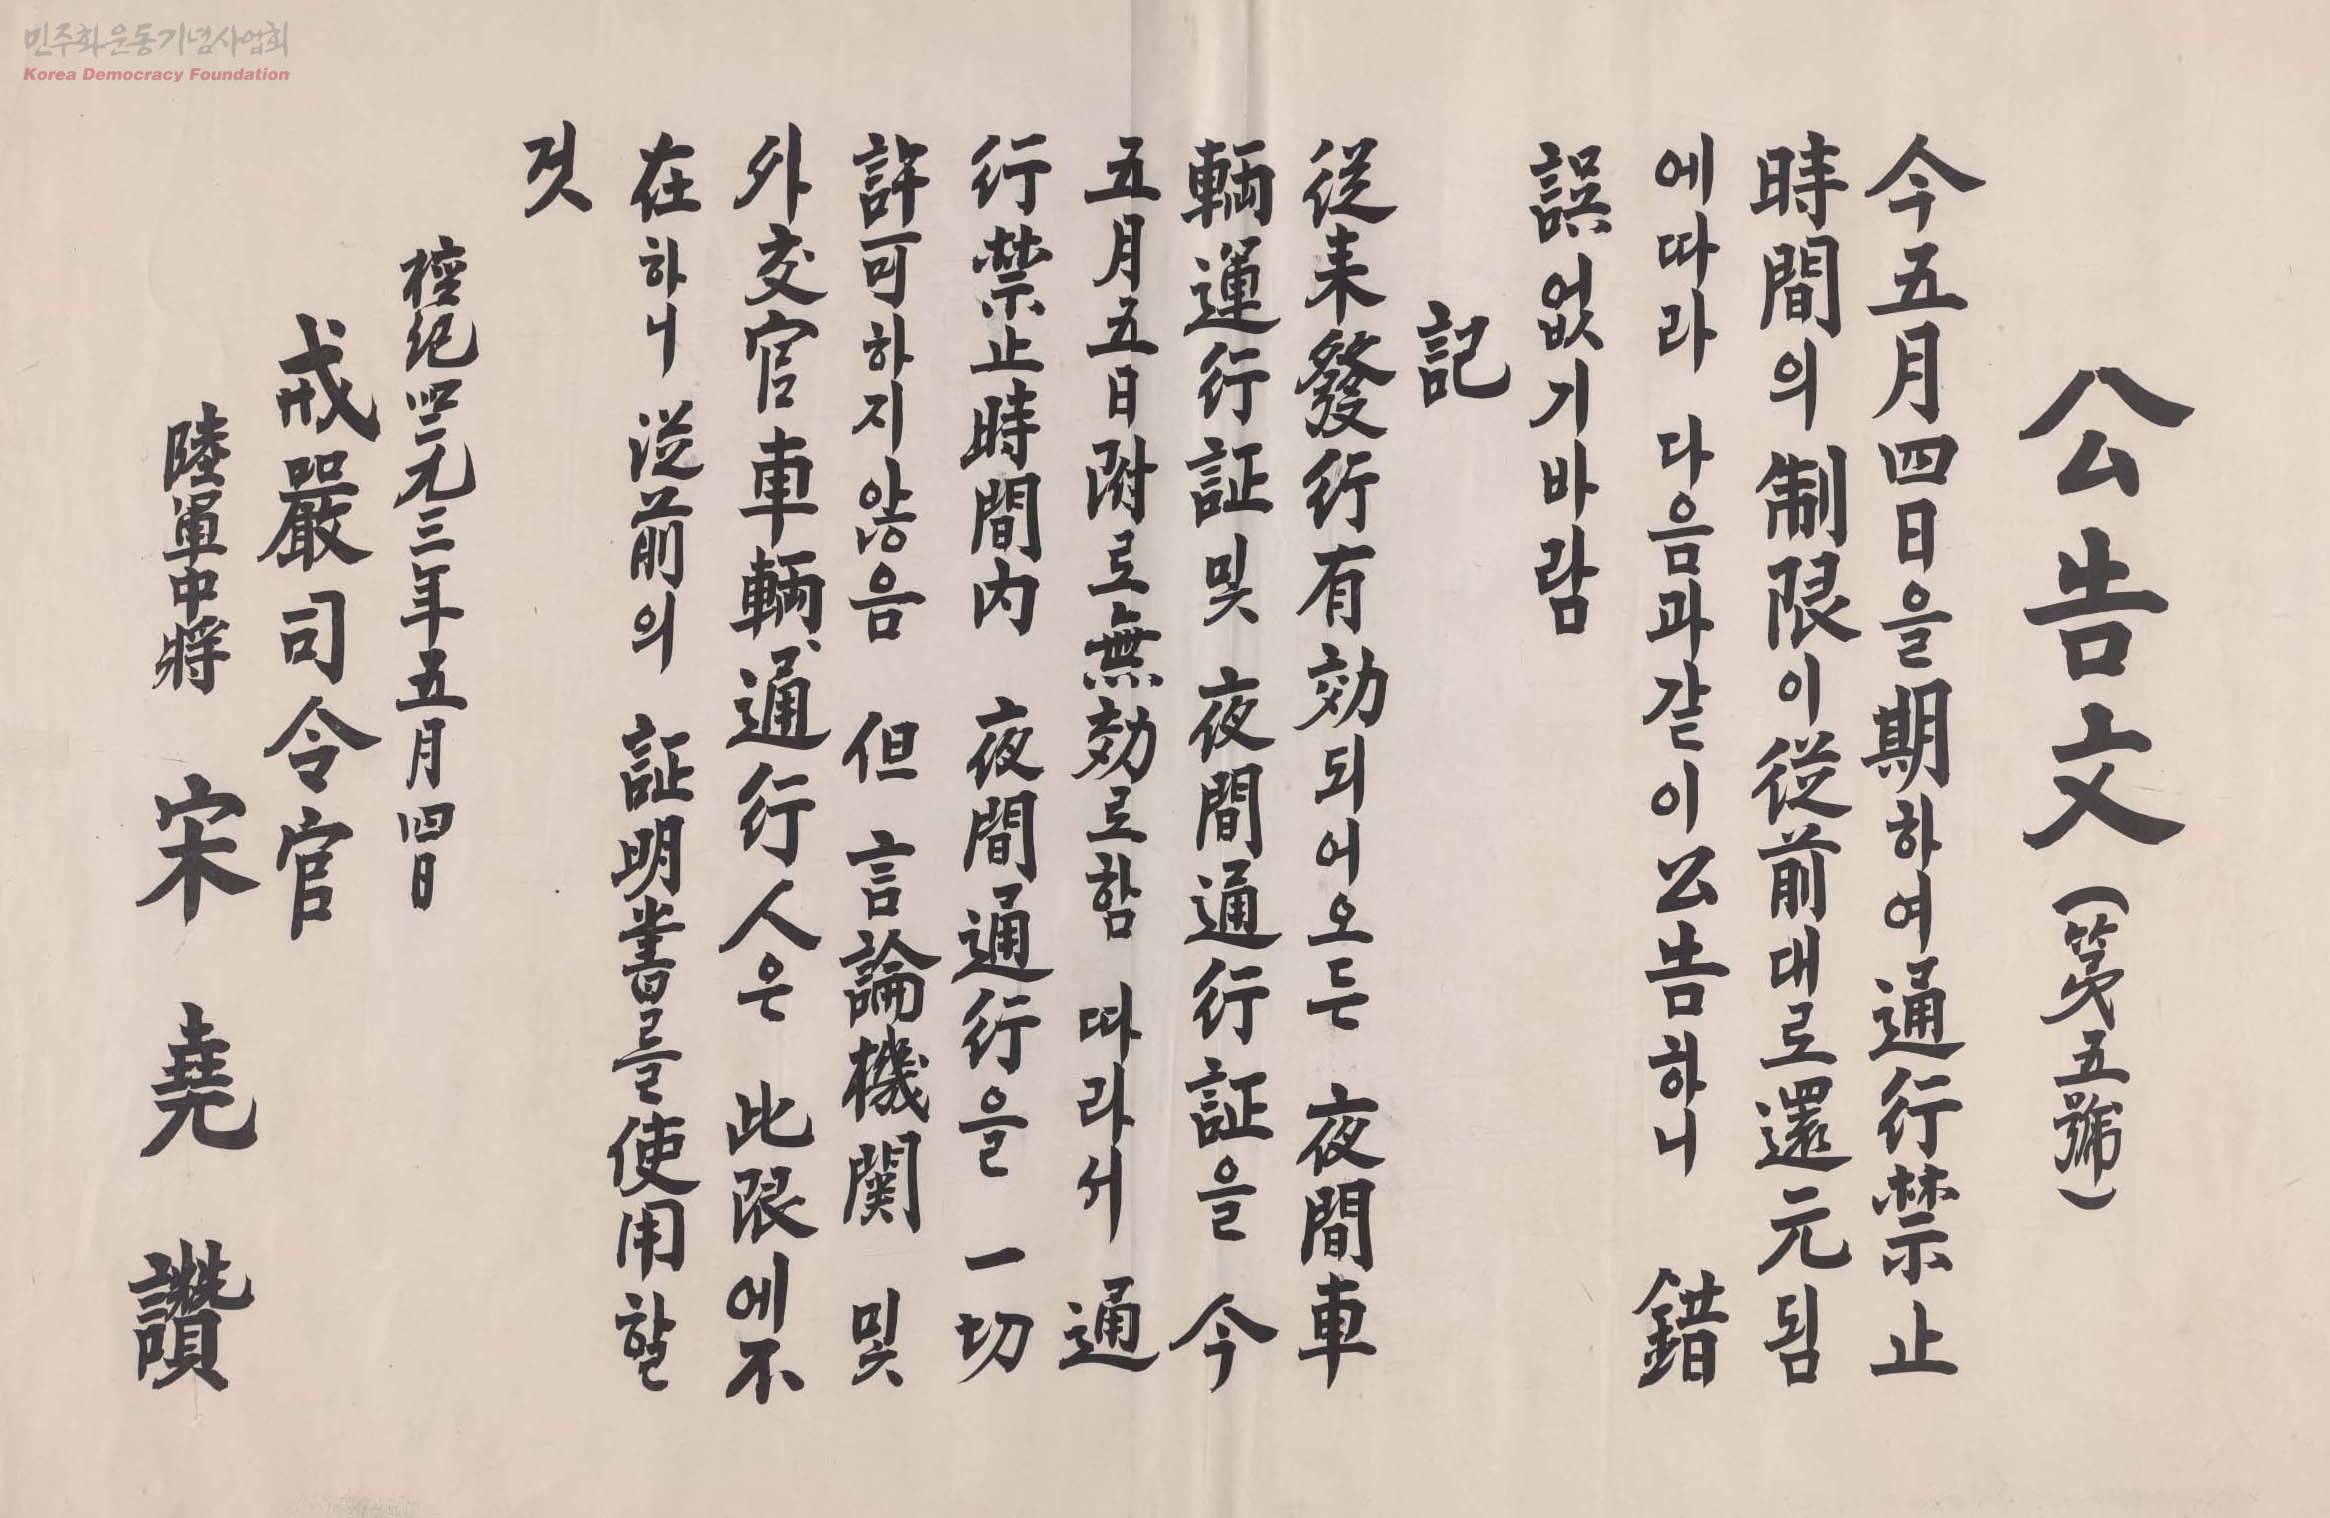 민주화운동기념사업회
Korea Democracy Foundation
公告文(第五號)
今五月四日을期하여通行禁止
時間의制限이從前대로還元됨
에따라 다음과같이公告하니 錯
誤없기바람
記
從来發行有効되어오든 夜間車
輌運行証및 夜間通行証을 今
五月五日附로無効로함 따라서 通
行禁止時間内 夜間通行을 一切
許可하지않음 但 言論機関 및
外交官車輌、通行人은 此限에不
在하니 従前의 証明書를使用할
것
檀紀四二九三年五月四日
戒嚴司令官
陸軍中將 宋堯讚